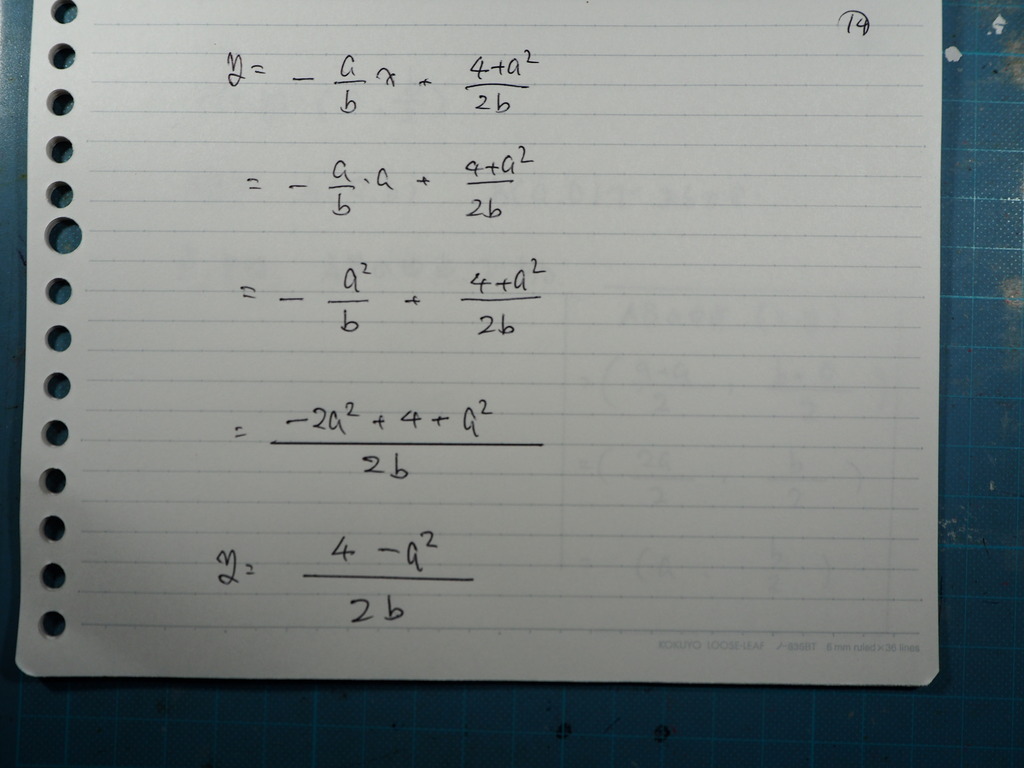 ⑭
y = - a/b x + (4+a²)/2b
= - a/b · a + (4+a²)/2b
= - a²/b + (4+a²)/2b
= (-2a² + 4 + a²)/2b
y = (4 - a²)/2b
KOKUYO LOOSE-LEAF ノ-836BT 6 mm ruled×36 lines